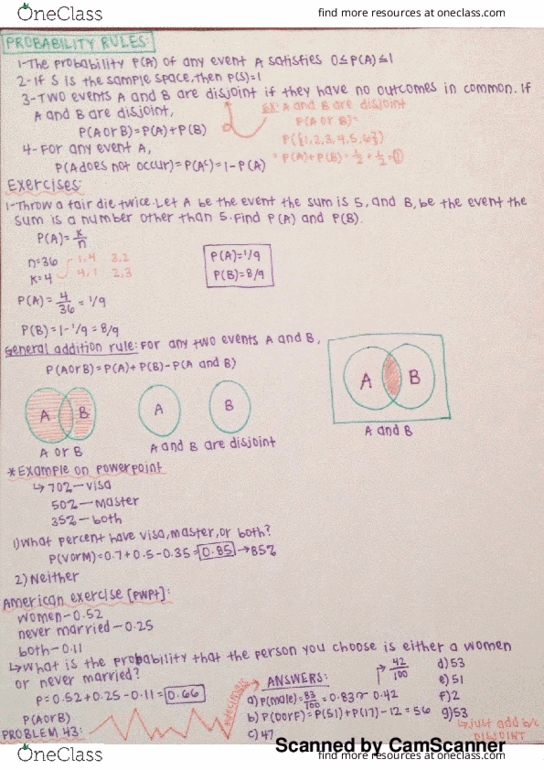 OneClass
find more resources at oneclass.com
PROBABILITY RULES:
1-The probability P(A) of any event A satisfies 0≤P(A)≤1
2-If S is the sample space, then P(S)=1
3-TWO events A and B are disjoint if they have no outcomes in common. If
A and B are disjoint,
P(A or B)=P(A)+P(B)
Ex: A and B are disjoint
P(A or B)=
P({1,2,3,4,5,6})
=P(A)+P(B)=1/2+1/2=1
4-For any event A,
P(A does not occur)=P(Aᶜ)=1-P(A)
Exercises:
1-Throw a fair die twice. Let A be the event the sum is 5, and B, be the event the
sum is a number other than 5. Find P(A) and P(B).
P(A)=K/n
n=36
K=4
1,4 3,2
4,1 2,3
P(A)=1/9
P(B)=8/9
P(A)=4/36=1/9
P(B)=1-1/9=8/9
General addition rule: For any two events A and B,
P(A or B)=P(A)+P(B)-P(A and B)
A B
A
B
A B
A or B
A and B are disjoint
A and B
*Example on powerpoint
↳70%-visa
50%-master
35%-both
1)What percent have visa, master, or both?
P(V or M)=0.7+0.5-0.35=0.85→85%
2)Neither
American exercise [PWPt]:
women-0.52
never married-0.25
both-0.11
↳What is the probability that the person you choose is either a women
or never married?
P=0.52+0.25-0.11=0.66
P(A or B)
PROBLEM 43:
ANSWERS:
42/100
a)P(male)=83/100=0.83 0.42
b)P(D or F)=P(51)+P(17)-12=56
c)47
d)53
e)51
f)2
g)53
↳just add b/c
DISJOINT
Scanned by CamScanner
OneClass
find more resources at oneclass.com